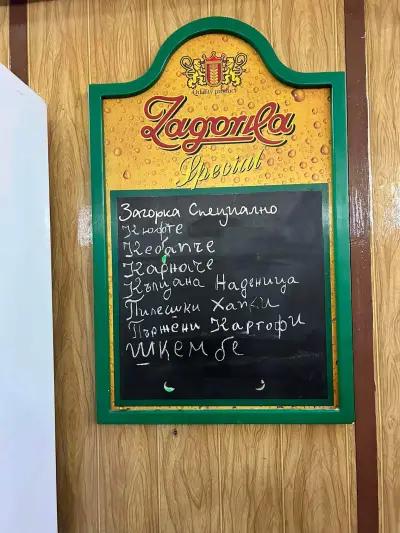 Quality product
Zagorka
Special
Загорка Специално
Кюфте
Кебапче
Карначе
Кълцана Наденица
Пилешки Хапки
Пържени Картофи
Шкембе